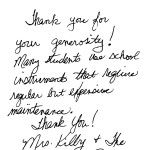 Thank you for
your generosity!
Many students use school
instruments that require
regular but expensive
maintenance.
Thank You!
Mrs. Kilby & The